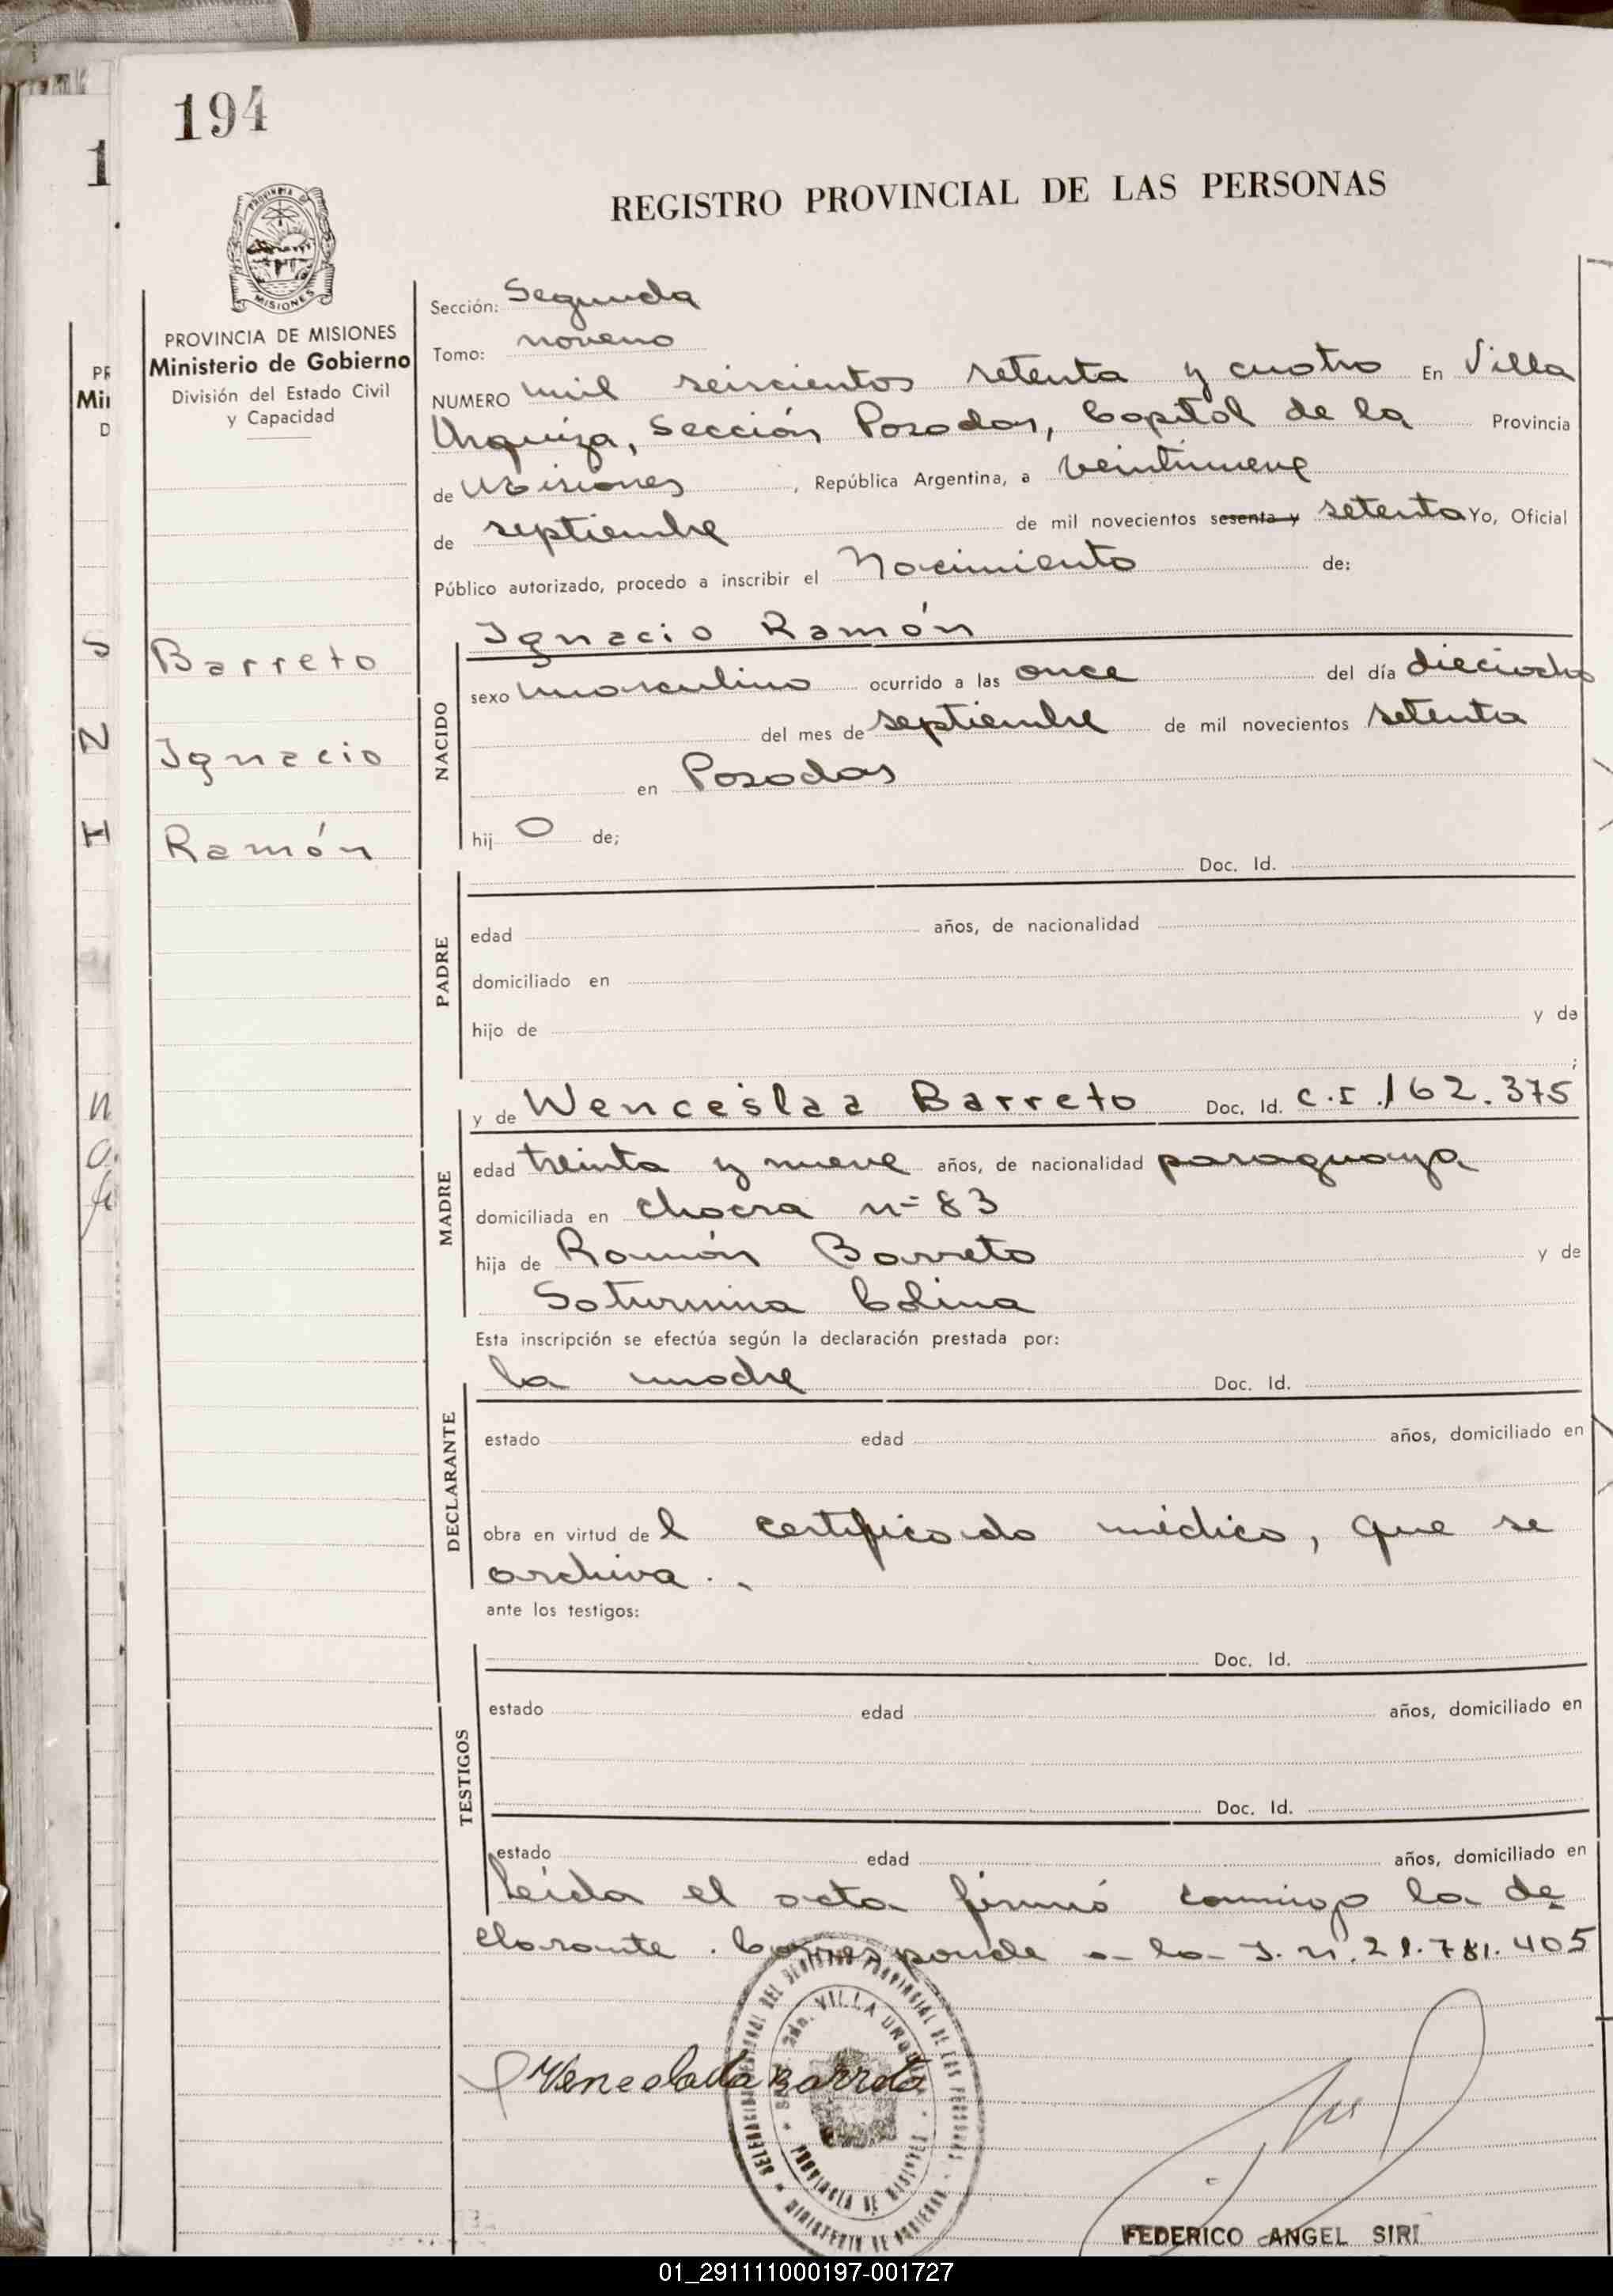 194
1
REGISTRO PROVINCIAL DE LAS PERSONAS
PROVINCIA DE
MISIONES
PROVINCIA DE MISIONES
Ministerio de Gobierno
División del Estado Civil
y Capacidad
Barreto
Ignacio
Ramón
Sección: Segunda
Tomo: noveno
NUMERO mil seiscientos setenta y cuatro En Villa
Urquiza, Sección Posadas, Capital de la Provincia
de Misiones, República Argentina, a veintinueve
de septiembre de mil novecientos sesenta y setenta Yo, Oficial
Público autorizado, procedo a inscribir el Nacimiento de:
NACIDO
Ignacio Ramón
sexo masculino ocurrido a las once del día dieciocho
del mes de septiembre de mil novecientos setenta
en Posadas
hij o de;
PADRE
Doc. Id.
edad años, de nacionalidad
domiciliado en
hijo de y de
;
MADRE
y de Wenceslaa Barreto Doc. Id. C.I. 162.375
edad treinta y nueve años, de nacionalidad paraguaya
domiciliada en chacra nº 83
hija de Ramón Barreto y de
Saturnina Colina
Esta inscripción se efectúa según la declaración prestada por:
DECLARANTE
la madre Doc. Id.
estado edad años, domiciliado en
obra en virtud de l certificado médico, que se
archiva.
ante los testigos:
TESTIGOS
Doc. Id.
estado edad años, domiciliado en
Doc. Id.
estado edad años, domiciliado en
Leída el acta firmó conmigo la de
clarante. Corresponde a la I. n. 21.781.405
DEL REGISTRO PROVINCIAL DE LAS PERSONAS
VILLA URQUIZA
PROVINCIA DE MISIONES
MINISTERIO DE GOBIERNO
Barreto
FEDERICO ANGEL SIRI
01_291111000197-001727